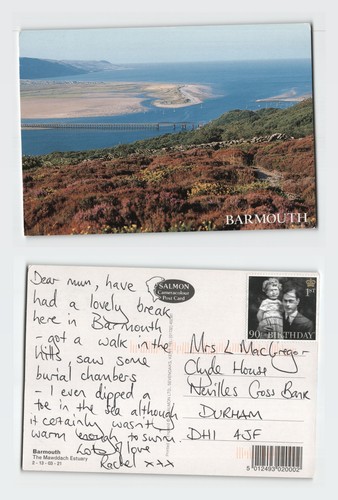 BARMOUTH
Dear mum, have
had a lovely break
here in Barmouth
- got a walk in the
hills, saw some
burial chambers
- I even dipped a
toe in the sea although
it certainly wasn't
warm enough to swim.
Lots of love
Rachel xxx
SALMON
Cameracolour
Post Card
1ST
90TH BIRTHDAY
Mrs L MacGregor
Clyde House
Nevilles Cross Bank
DURHAM
DH1 4JF
Barmouth
The Mawddach Estuary
2-13-03-21
5 012493 020002